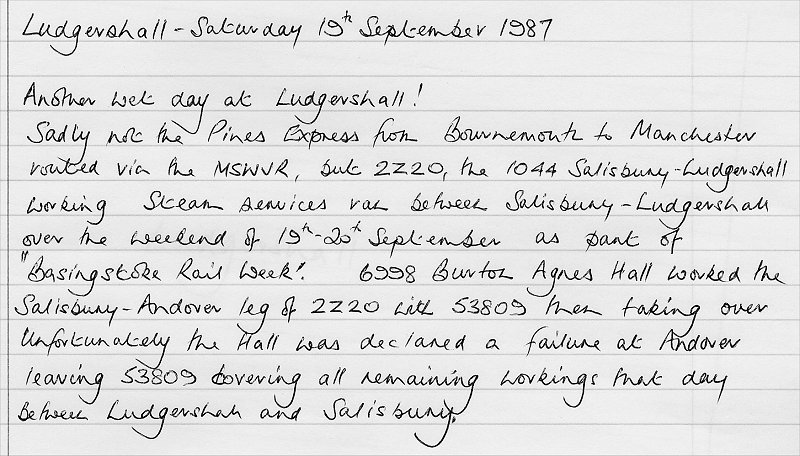 Ludgershall - Saturday 19th September 1987
Another wet day at Ludgershall!
Sadly not the Pines Express from Bournemouth to Manchester
routed via the MSWJR, but 2Z20, the 1044 Salisbury-Ludgershall
working Steam services ran between Salisbury-Ludgershall
over the weekend of 19th-20th September as part of
"Basingstoke Rail Week". 6998 Burton Agnes Hall worked the
Salisbury-Andover leg of 2Z20 with 53809 then taking over
Unfortunately the Hall was declared a failure at Andover
leaving 53809 covering all remaining workings that day
between Ludgershall and Salisbury.